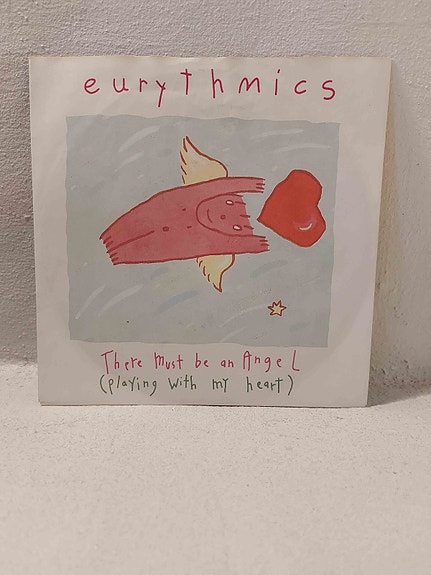 eurythmics
There Must be an Angel
(playing with my heart)